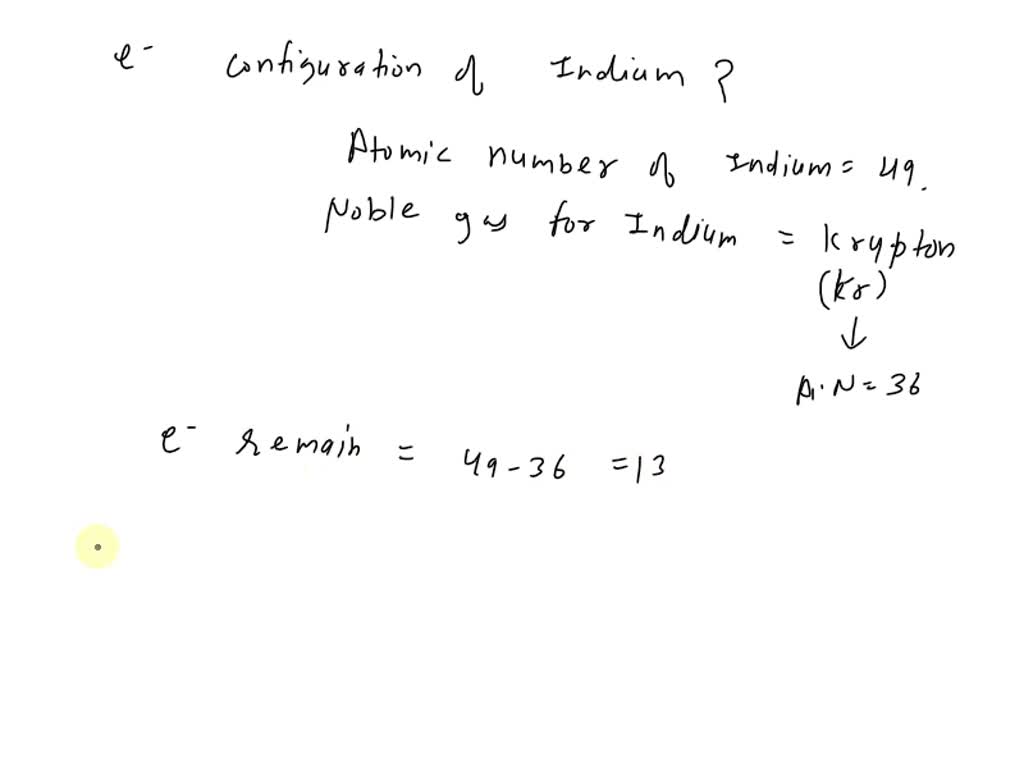 e⁻ configuration of Indium ?
Atomic number of Indium = 49.
Noble gas for Indium = Krypton
(Kr)
↓
A.N = 36
e⁻ remain = 49 - 36 = 13